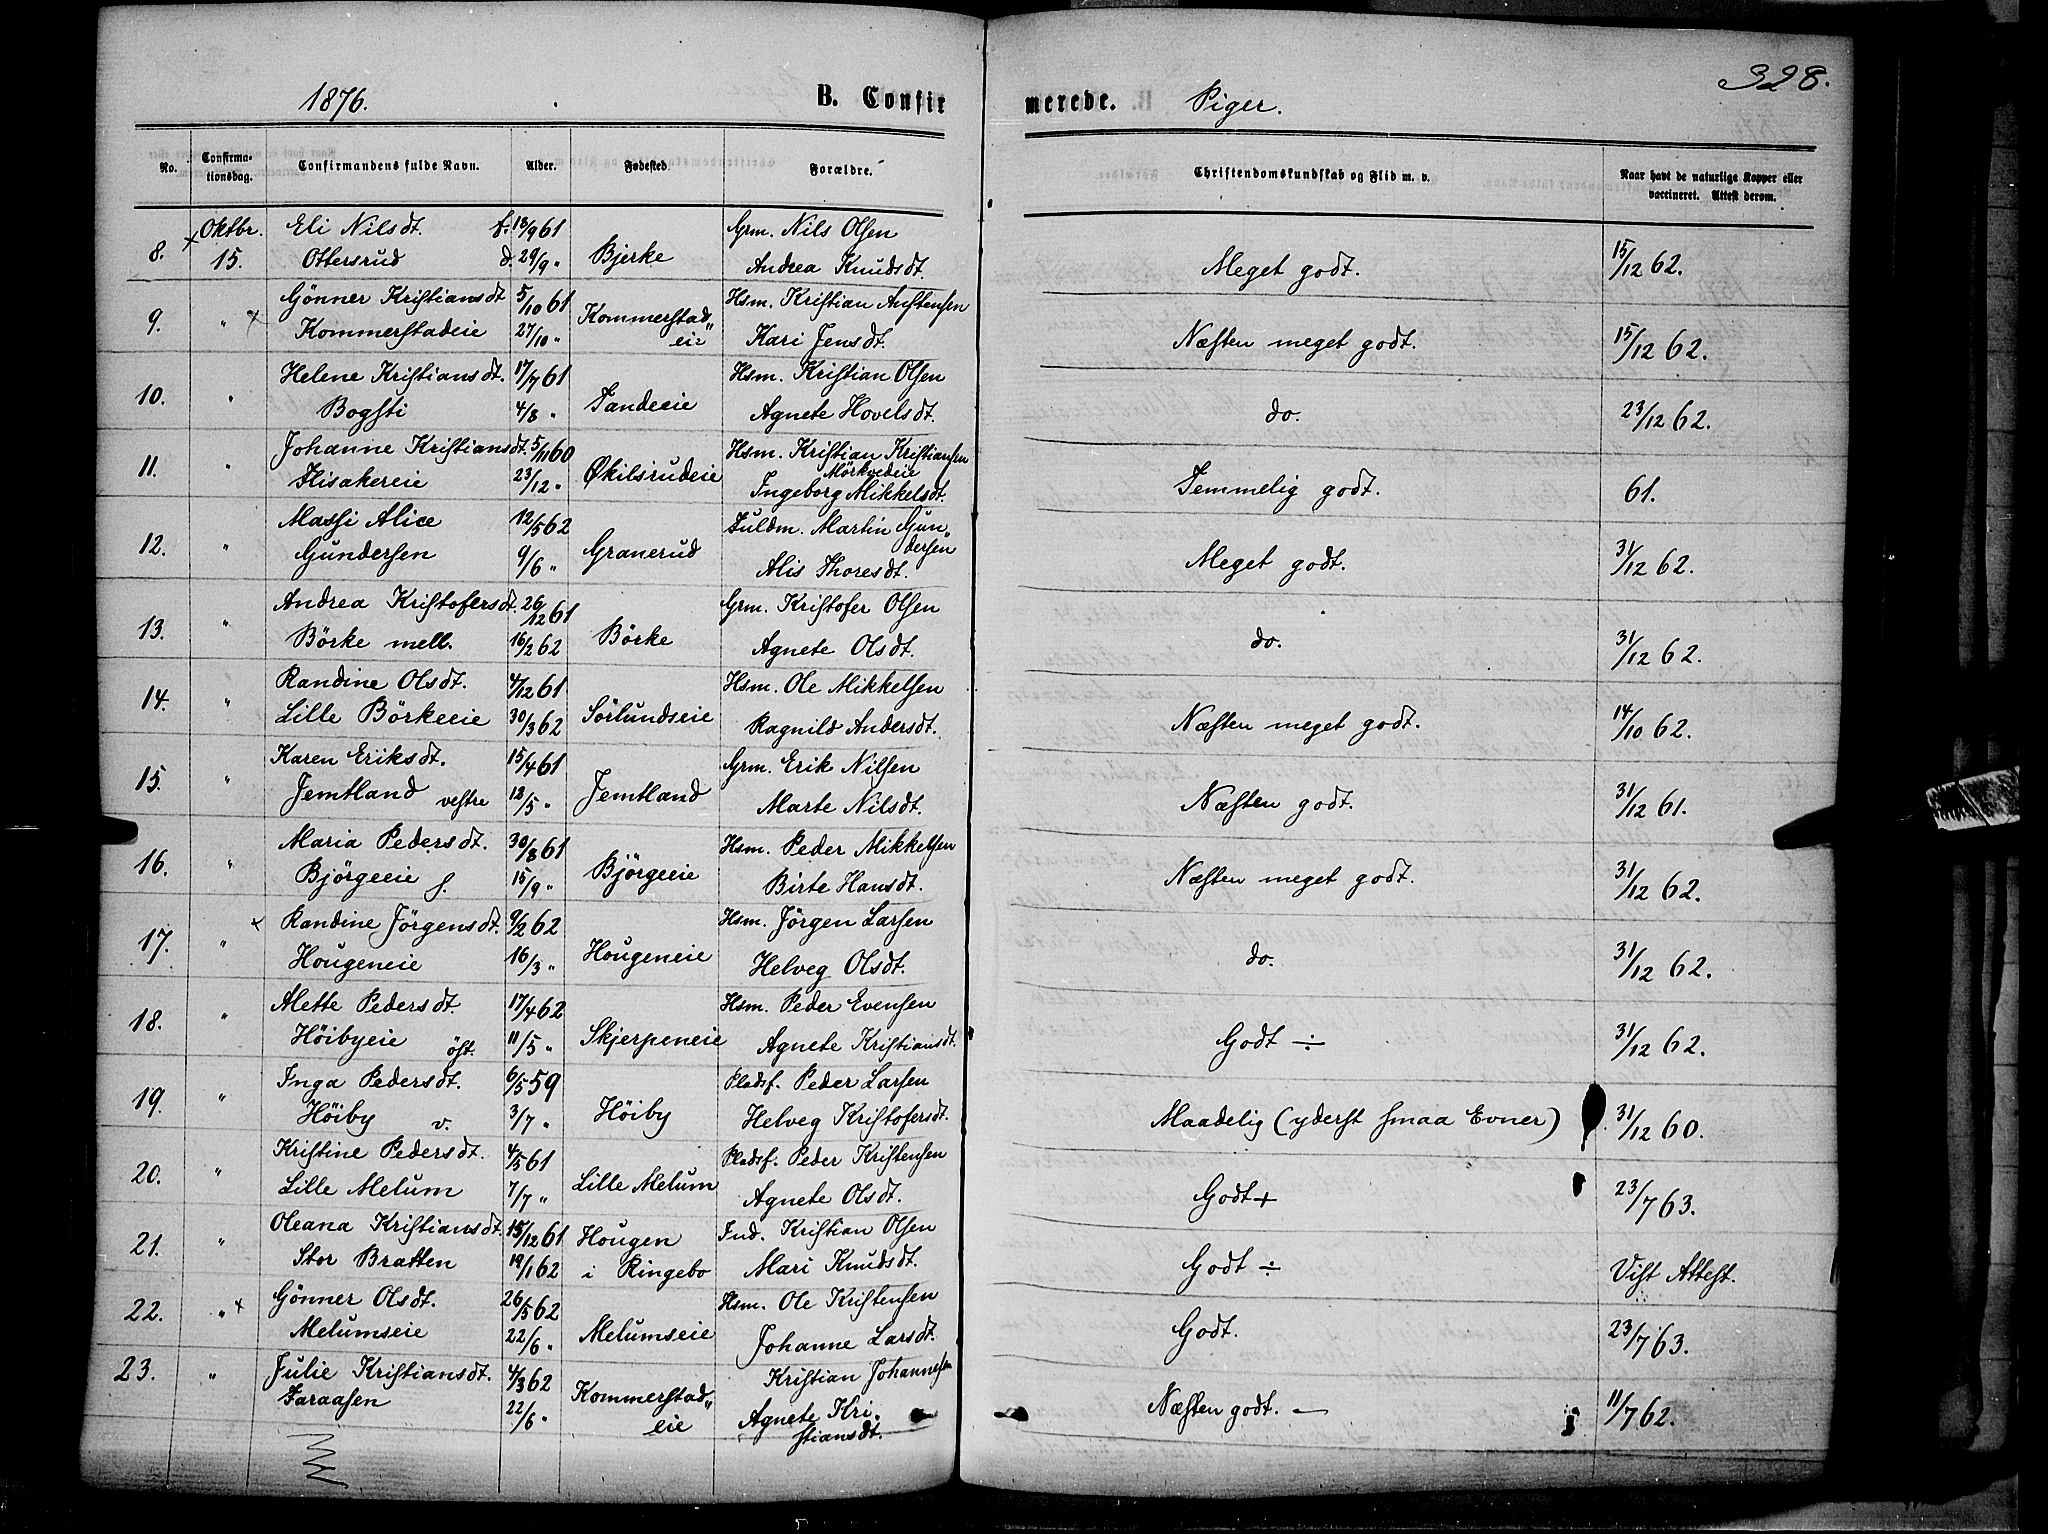 328.
1876. B. Confirmerede. Piger.
No. Confirmationsdag. Confirmandens fulde Navn. Alder. Fødested Forældre. Christendomskundskab og Flid m. v. Naar havt de naturlige Kopper eller vaccineret. Attest derom.
Oktbr. Eli Nilsdt. f. 13/9 61 Grm. Nils Olsen
8. 15. Ottersrud d. 29/9 " Bjerke Andrea Knudsdt. Meget godt. 15/12 62.
Gönner Kristiansdt 5/10 61 Kommerstad„ Hsm. Kristian Austensen
9. " Kommerstadeie 27/10 " eie Kari Jensdt. Næsten meget godt. 15/12 62.
Helene Kristiansdt. 17/7 61 Hsm. Kristian Olsen
10. " Bogsti 4/8 " Sandeeie Agnete Hovelsdt. do. 23/12 62.
Johanne Kristiansdt. 5/11 60 Hsm. Kristian Kristiansen
Mörkvedeie
11. " Flisakereie 23/12 " Økilsrudeie Ingeborg Mikkelsdt. Temmelig godt. 61.
Massi Alice 12/5 62 Fuldm. Martin Gun„
dersen
12. " Gundersen 9/6 " Granerud Alis Thoresdt. Meget godt. 31/12 62.
Andrea Kristofersdt. 26/12 61 Grm. Kristofer Olsen
13. " Börke mell. 16/2 62 Börke Agnete Olsdt. do. 31/12 62.
Randine Olsdt. 4/12 61 Hsm. Ole Mikkelsen
14. " Lille Börkeeie 30/3 62 Sörlundseie Ragnild Andersdt. Næsten meget godt. 14/10 62.
Karen Eriksdt. 15/4 61 Grm. Erik Nilsen
15. " Jemtland vestre 12/5 " Jemtland Marte Nilsdt. Næsten godt. 31/12 61.
Maria Pedersdt. 30/8 61 Hsm. Peder Mikkelsen
16. " Bjørgeeie s. 15/9 " Bjørgeeie Birte Hansdt. Næsten meget godt. 31/12 62.
Randine Jörgensdt. 9/2 62 Hsm. Jörgen Larsen
17. " Hougeneie 16/3 " Hougeneie Helveg Olsdt. do. 31/12 62.
Alette Pedersdt. 17/4 62 Hsm. Peder Evensen
18. " Höibyeie öst. 11/5 " Skjerpeneie Agnete Kristiansdt. Godt ÷ 31/12 62.
Inga Pedersdt. 6/5 59 Pladsf. Peder Larsen
19. " Höiby v. 3/7 " Höiby Helveg Kristofersdt. Maadelig (yderst smaa Evner) 31/12 60.
Kristine Pedersdt. 4/5 61 Pladsf. Peder Kristensen
20. " Lille Melum 7/7 " Lille Melum Agnete Olsdt. Godt + 23/7 63.
Oleana Kristiansdt. 15/12 61 Hougen Ind. Kristian Olsen
21. " Stor Bratten 19/1 62 i Ringebo Mari Knudsdt. Godt ÷ Vist Attest.
Gönner Olsdt. 26/5 62 Hsm. Ole Kristensen
22. " Melumseie 22/6 " Melumseie Johanne Larsdt. Godt. 23/7 63.
23. " Julie Kristiansdt. 4/3 62 Kommerstad„ Kristian Johannesen
Faraasen 22/6 " eie Agnete Kri„ Næsten godt. — 11/7 62.
stiansdt.